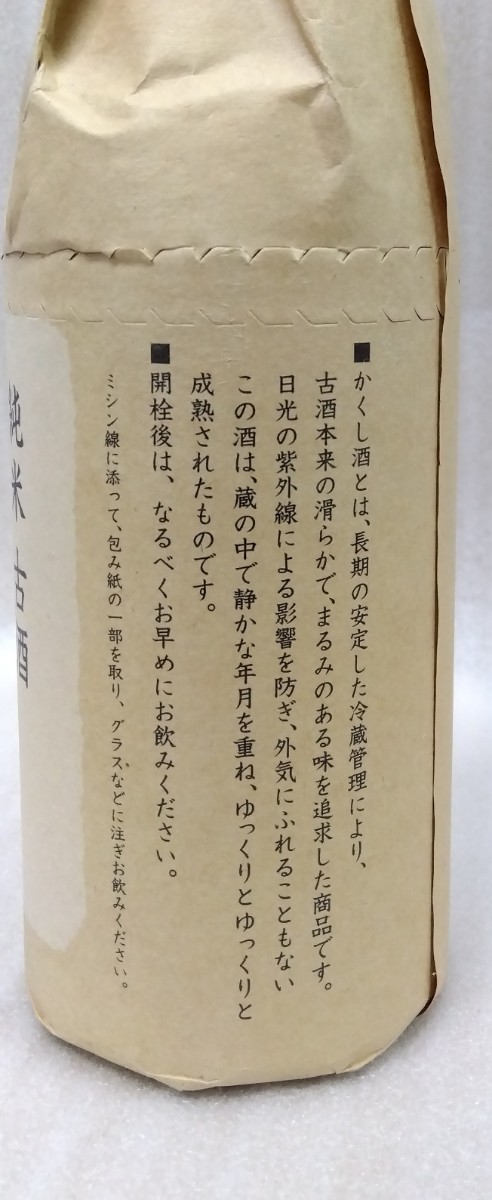 ■かくし酒とは、長期の安定した冷蔵管理により、
古酒本来の滑らかで、まるみのある味を追求した商品です。
日光の紫外線による影響を防ぎ、外気にふれることもない
この酒は、蔵の中で静かな年月を重ね、ゆっくりとゆっくりと
成熟されたものです。
■開栓後は、なるべくお早めにお飲みください。
ミシン線に添って、包み紙の一部を取り、グラスなどに注ぎお飲みください。
純米古酒